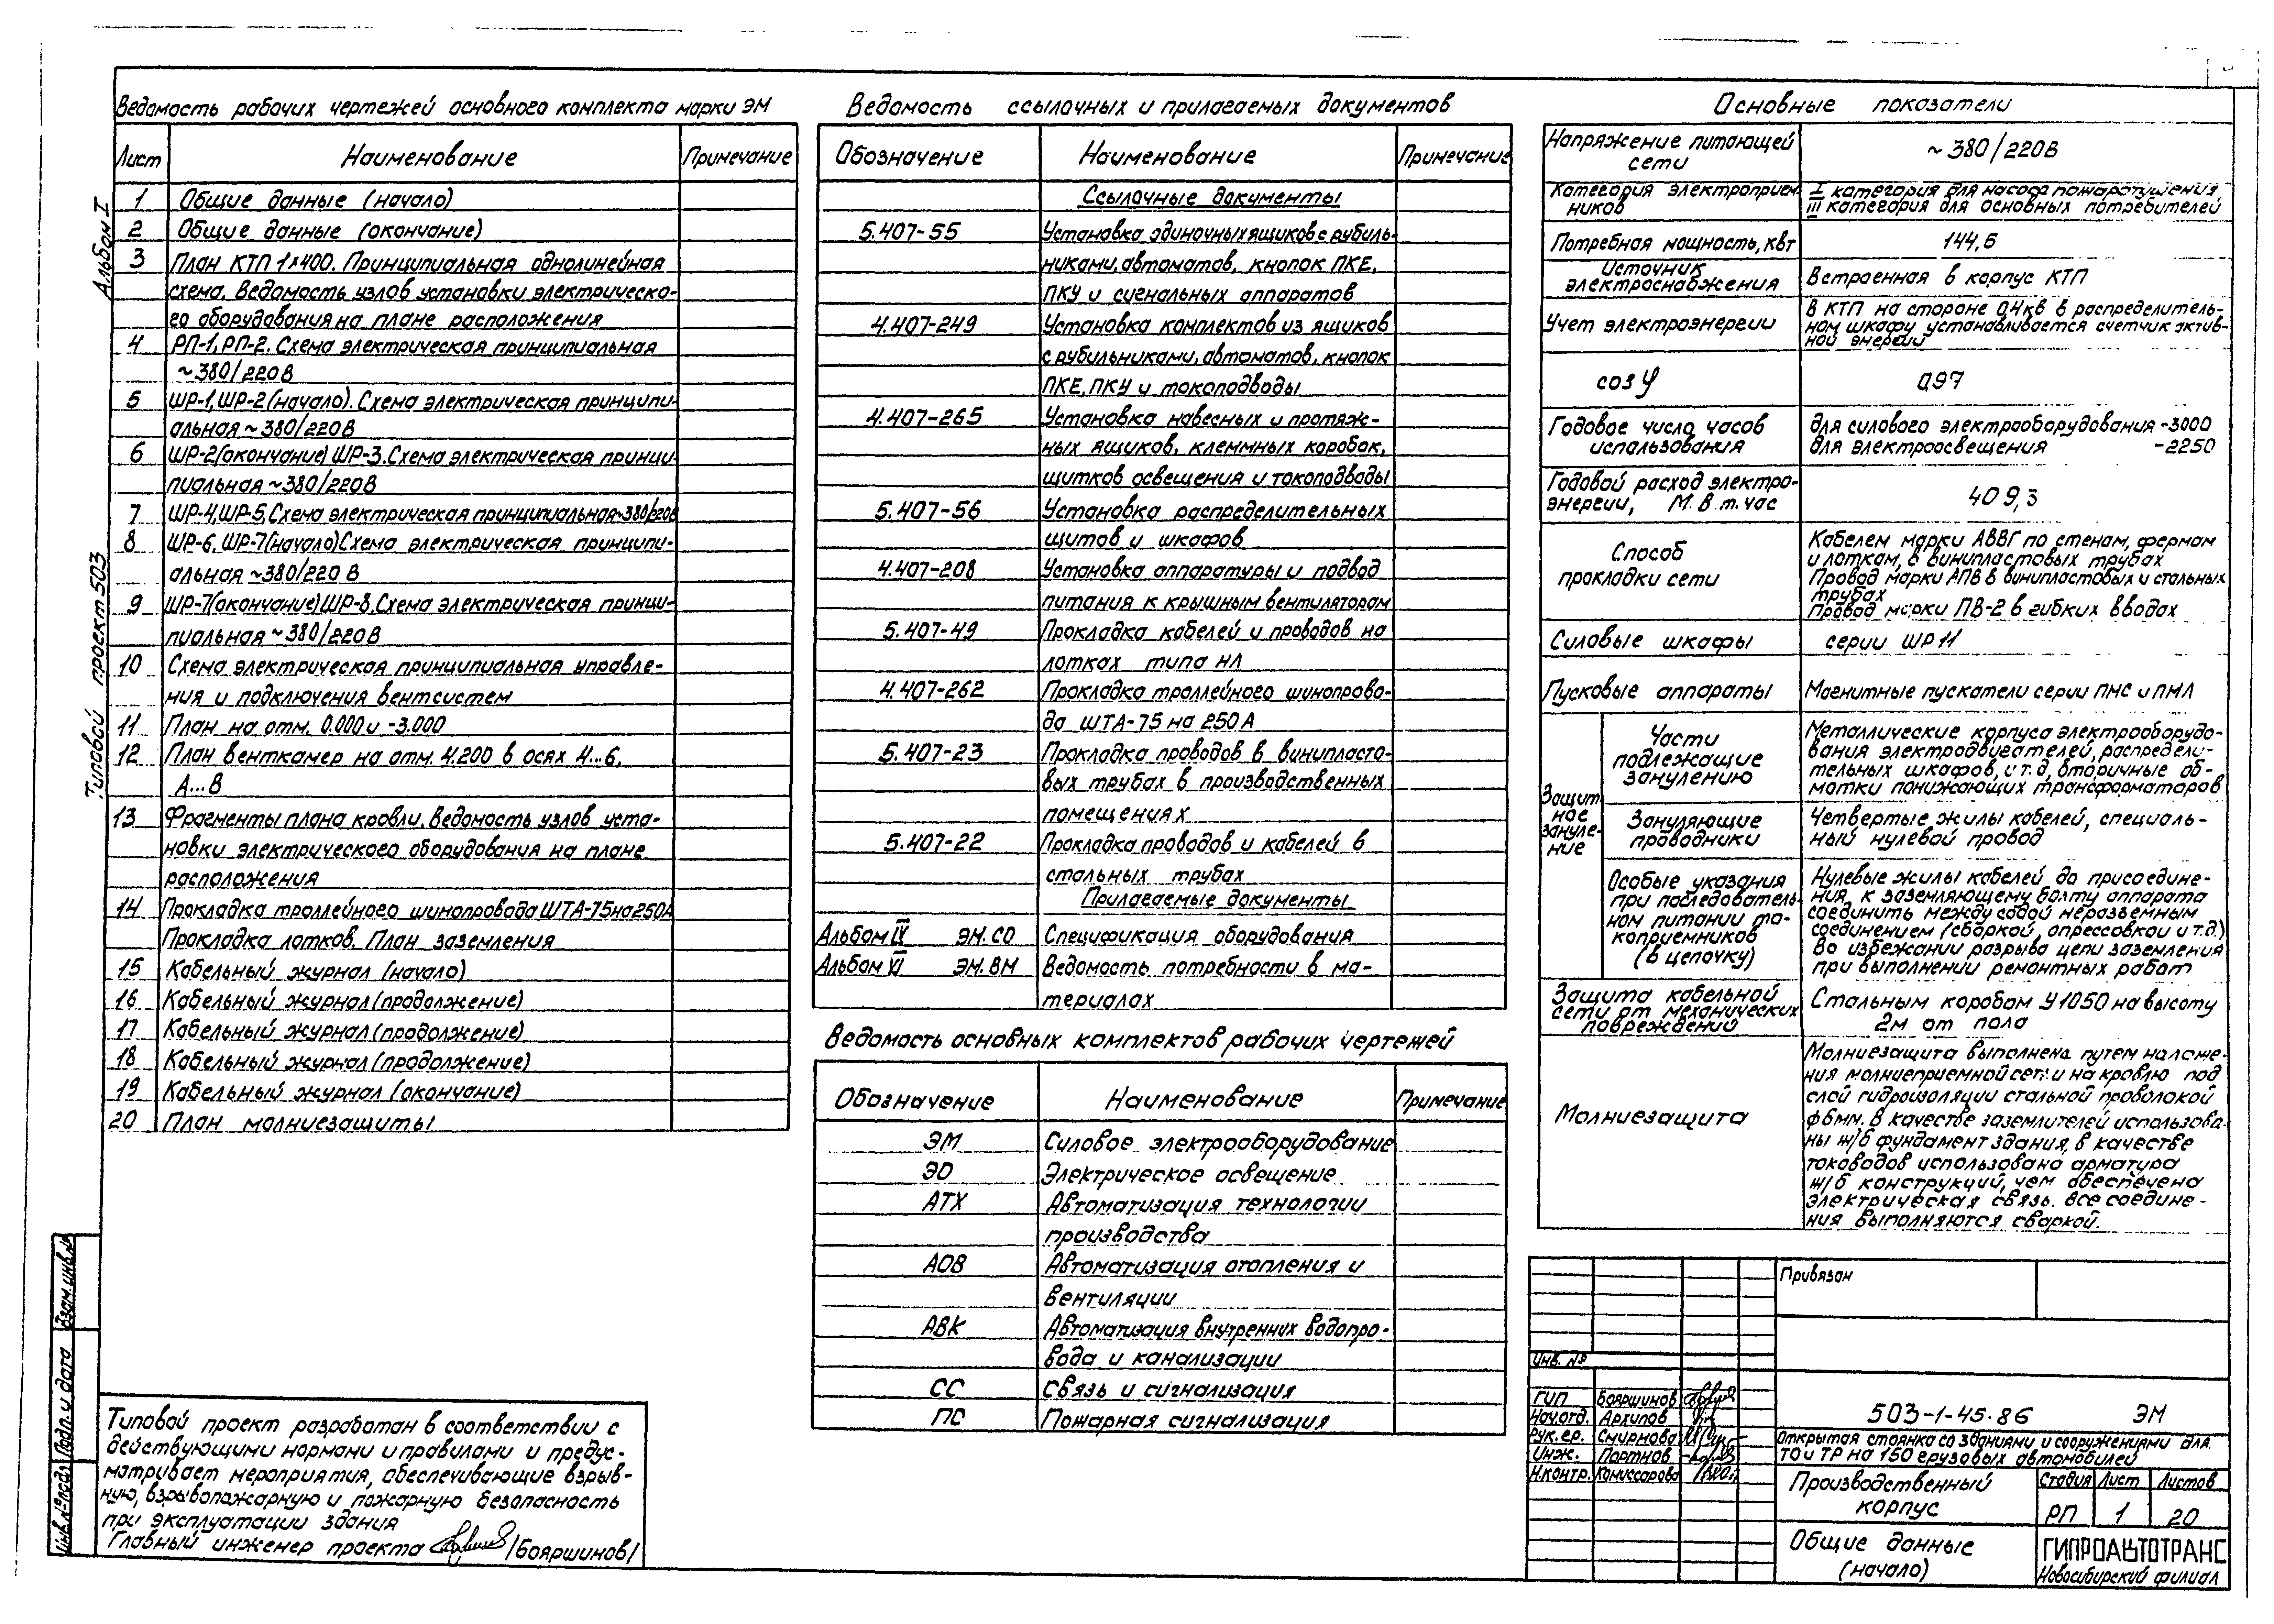 Ведомость рабочих чертежей основного комплекта марки ЭМ
Лист Наименование Примечание
1 Общие данные (начало)
2 Общие данные (окончание)
3 План КТП 1×400. Принципиальная однолинейная
схема. Ведомость узлов установки электрическо-
го оборудования на плане расположения
4 РП-1, РП-2. Схема электрическая принципиальная
~380/220В
5 ШР-1, ШР-2 (начало). Схема электрическая принципи-
альная ~380/220В
6 ШР-2 (окончание) ШР-3. Схема электрическая принци-
пиальная ~380/220В
7 ШР-4, ШР-5, Схема электрическая принципиальная ~380/220В
8 ШР-6, ШР-7 (начало) Схема электрическая принципи-
альная ~380/220 В
9 ШР-7 (окончание) ШР-8. Схема электрическая принци-
пиальная ~380/220В
10 Схема электрическая принципиальная управле-
ния и подключения вентсистем
11 План на отм. 0.000 и -3.000
12 План венткамер на отм. 4.200 в осях 4...6,
А...В
13 Фрагменты плана кровли. Ведомость узлов уста-
новки электрического оборудования на плане
расположения
14 Прокладка троллейного шинопровода ШТА-75 на 250А
Прокладка лотков. План заземления
15 Кабельный журнал (начало)
16 Кабельный журнал (продолжение)
17 Кабельный журнал (продолжение)
18 Кабельный журнал (продолжение)
19 Кабельный журнал (окончание)
20 План молниезащиты
Ведомость ссылочных и прилагаемых документов
Обозначение Наименование Примечание
Ссылочные документы
5.407-55 Установка одиночных ящиков с рубиль-
никами, автоматов, кнопок ПКЕ,
ПКУ и сигнальных аппаратов
4.407-249 Установка комплектов из ящиков
с рубильниками, автоматов, кнопок
ПКЕ, ПКУ и токоподводы
4.407-265 Установка навесных и протяж-
ных ящиков, клеммных коробок,
щитков освещения и токоподводы
5.407-56 Установка распределительных
щитов и шкафов
4.407-208 Установка аппаратуры и подвод
питания к крышным вентиляторам
5.407-49 Прокладка кабелей и проводов на
лотках типа НЛ
4.407-262 Прокладка троллейного шинопрово-
да ШТА-75 на 250А
5.407-23 Прокладка проводов в винипласто-
вых трубах в производственных
помещениях
5.407-22 Прокладка проводов и кабелей в
стальных трубах
Прилагаемые документы
Альбом IX ЭМ.СО Спецификация оборудования
Альбом XI ЭМ.ВМ Ведомость потребности в ма-
териалах
Ведомость основных комплектов рабочих чертежей
Обозначение Наименование Примечание
ЭМ Силовое электрооборудование
ЭО Электрическое освещение
АТХ Автоматизация технологии
производства
АОВ Автоматизация отопления и
вентиляции
АВК Автоматизация внутренних водопро-
вода и канализации
СС Связь и сигнализация
ПС Пожарная сигнализация
Основные показатели
Напряжение питающей
сети
~380/220В
Категория электроприем-
ников
I категория для насоса пожаротушения
III категория для основных потребителей
Потребная мощность, квт 144,6
Источник
электроснабжения
Встроенная в корпус КТП
Учет электроэнергии
В КТП на стороне 0,4кв в распределитель-
ном шкафу устанавливается счетчик актив-
ной энергии
cos φ 0,97
Годовое число часов
использования
для силового электрооборудования -3000
для электроосвещения -2250
Годовой расход электро-
энергии, М.В.т.час
409,3
Способ
прокладки сети
Кабелем марки АВВГ по стенам, фермам
и лоткам, в винипластовых трубах
Провод марки АПВ в винипластовых и стальных
трубах
Провод марки ПВ-2 в гибких вводах
Силовые шкафы серии ШР11
Пусковые аппараты Магнитные пускатели серии ПМС и ПМЛ
Защит-
ное
зануле-
ние
Части
подлежащие
занулению
Металлические корпуса электрооборудо-
вания электродвигателей, распредели-
тельных шкафов, и т.д, вторичные об-
мотки понижающих трансформаторов
Зануляющие
проводники
Четвертые жилы кабелей, специаль-
ный нулевой провод
Особые указания
при последователь-
ном питании то-
коприемников
(в цепочку)
Нулевые жилы кабелей до присоедине-
ния к заземляющему болту аппарата
соединить между собой неразъемным
соединением (сваркой, опрессовкой и т.д.)
Во избежании разрыва цепи заземления
при выполнении ремонтных работ
Защита кабельной
сети от механических
повреждений
Стальным коробом У1050 на высоту
2м от пола
Молниезащита
Молниезащита выполнена путем наложе-
ния молниеприемной сетки на кровлю под
слой гидроизоляции стальной проволокой
ф6мм. В качестве заземлителей использова-
ны ж/б фундамент здания, в качестве
тоководов использована арматура
ж/б конструкций, чем обеспечена
электрическая связь. Все соедине-
ния выполняются сваркой.
Альбом I
Типовой проект 503
Взам. инв.№
Подп. и дата
Инв.№ подл
Типовой проект разработан в соответствии с
действующими нормами и правилами и предус-
матривает мероприятия, обеспечивающие взрыв-
ную, взрывопожарную и пожарную безопасность
при эксплуатации здания
Главный инженер проекта /Бояршинов/
Привязан
Инв. №
ГИП Бояршинов
Нач.отд. Архипов
Рук.гр. Смирнова
Инж. Портнов
Н.контр. Комиссарова
503-1-45.86 ЭМ
Открытая стоянка со зданиями и сооружениями для
ТО и ТР на 150 грузовых автомобилей
Производственный
корпус
Стадия Лист Листов
РП 1 20
Общие данные
(начало)
ГИПРОАВТОТРАНС
Новосибирский филиал